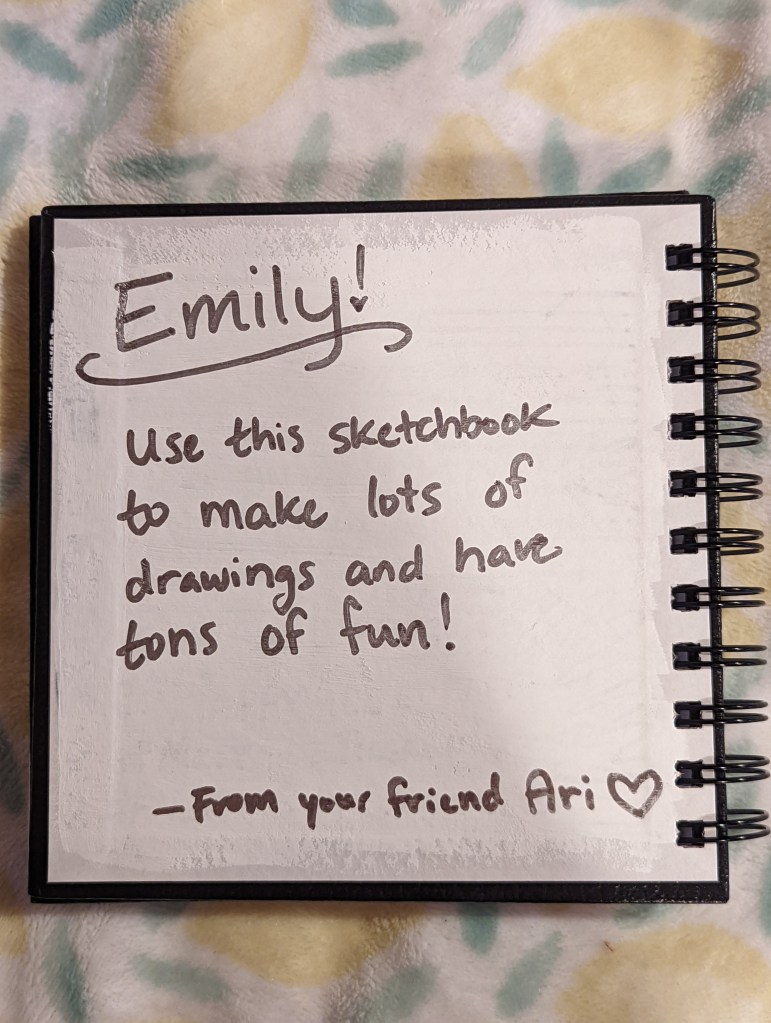 Emily!
Use this sketchbook
to make lots of
drawings and have
tons of fun!
—From your friend Ari ♡